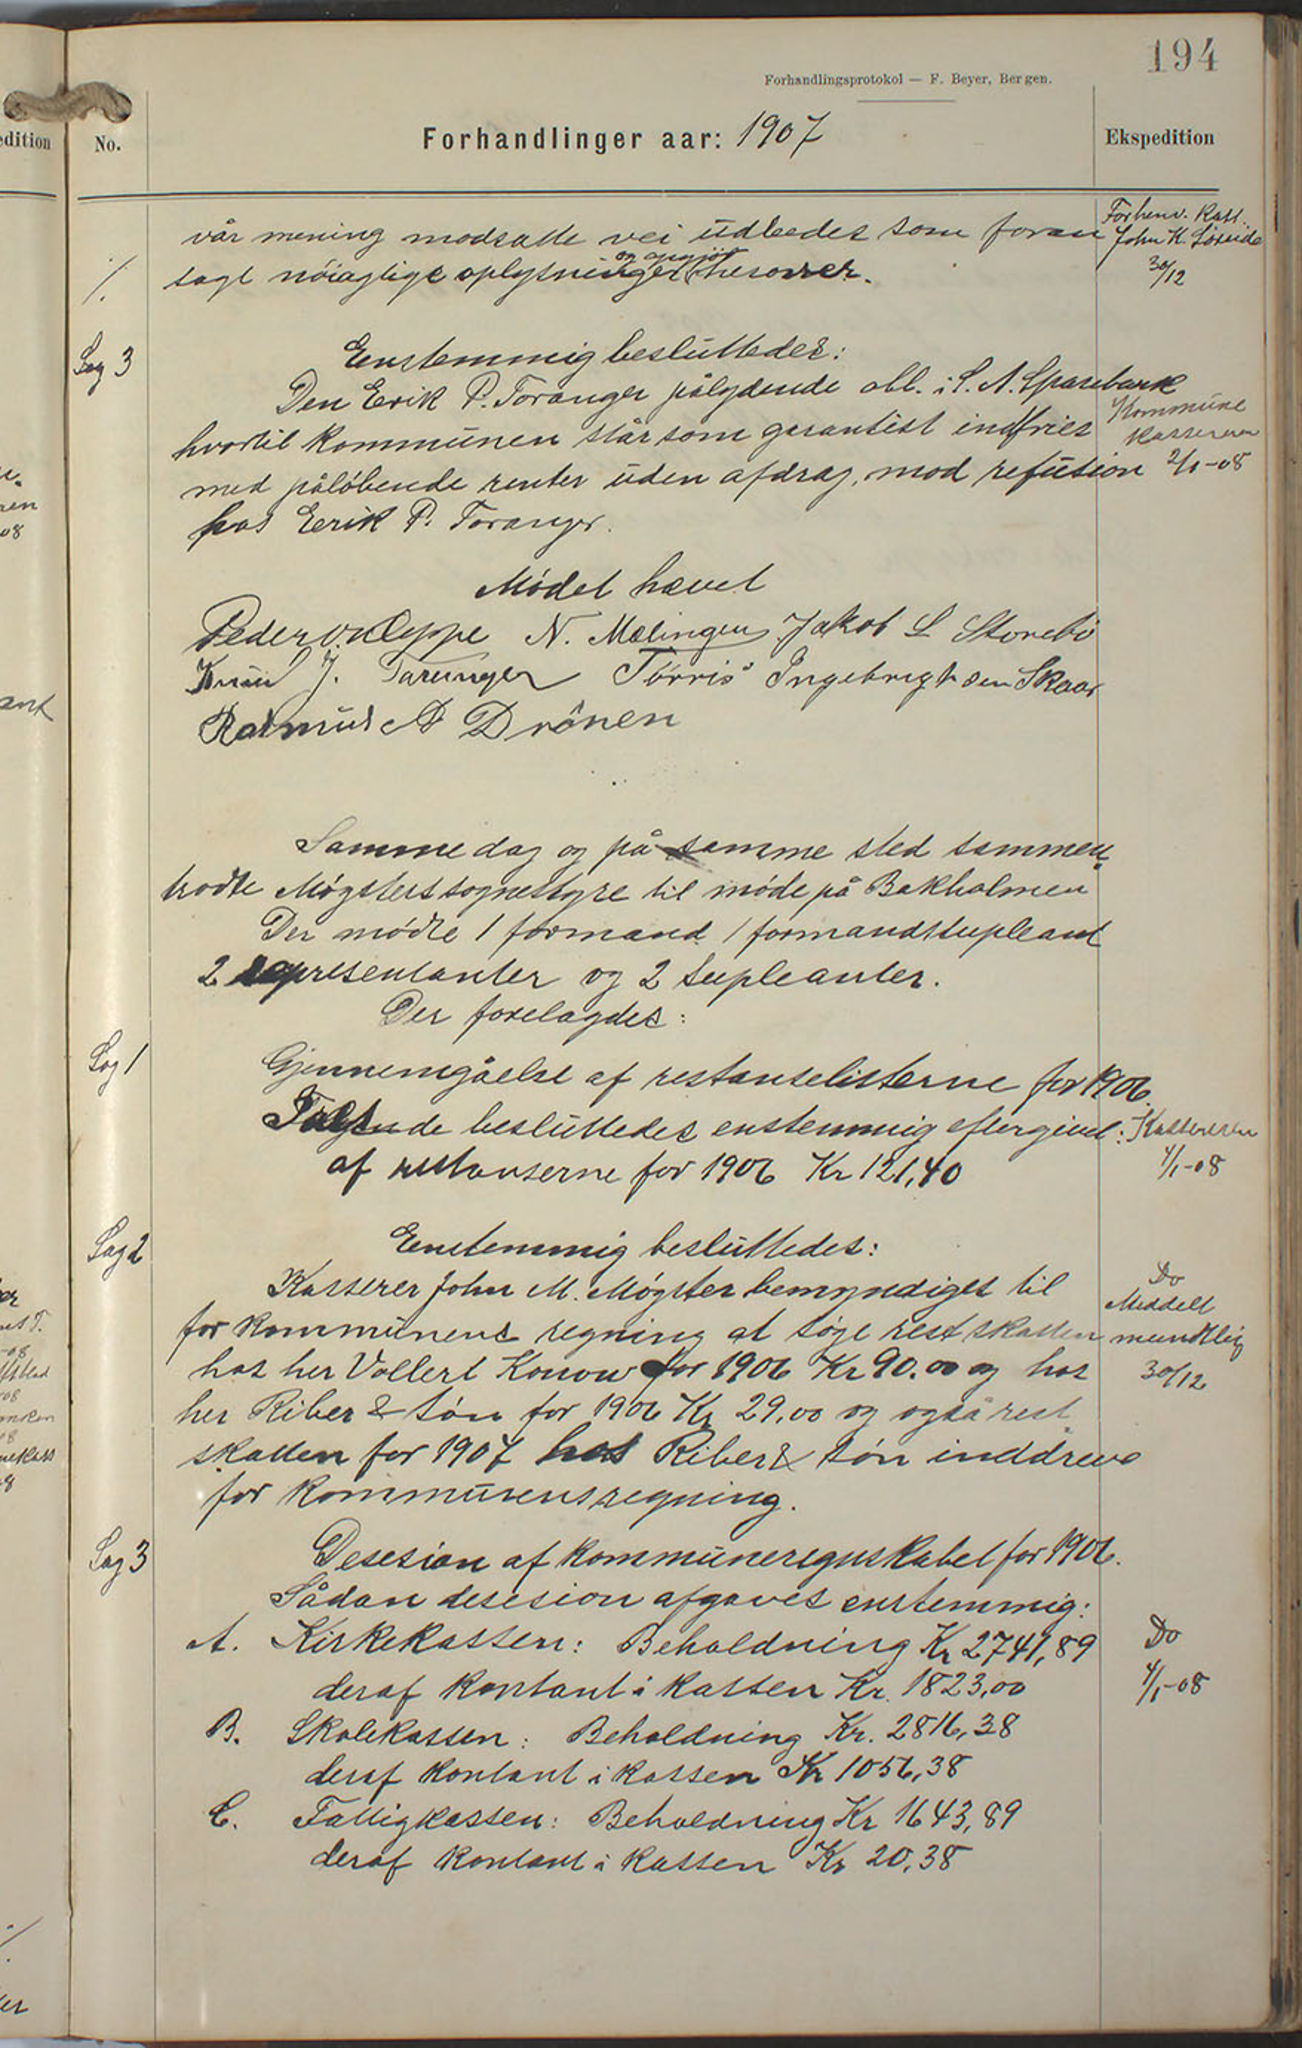 194
Forhandlingsprotokol — F. Beyer, Bergen.
edition
No.
Forhandlinger aar: 1907
Ekspedition
vår mening modsatte vei udbedes som foran
Forhenv. Kass.
John K. Løseide
30/12
sagt nöiagtige oplysninger og hesover.
%
Sag 3
Eenstemmig besluttedes:
Den Erik P. Toranger pålydende obl. i S. A. Sparebank
Kommune
Kassereren
2/1-08
hvortil kommunen står som garantist indfries
med påløbende renter uden afdrag, mod refution
hos Eerik P. Toranger.
Mödet hævet
Peder O. N. Oppe N. Mælingen Jakob L Storebö
Knud J. Taranger Tørris Ingebrigtsen Skaar
Rasmus A Drönen
Samme dag og på samme sted sammen
trådte Møgsters sognestyre til møde på Bakholmen
Der mødte 1 formand 1 formandsupleant
2 representanter og 2 supleanter.
Der forelagdes:
Sag 1
Gjennemgåelse af restanselisterne for 1906.
Følgende besluttedes enstemmig eftergivet:
Kassereren
4/1-08
af restanserne for 1906 Kr 121,40
Sag 2
Eenstemmig besluttedes:
Kasserer John M. Møgster bemyndiges til
Do
Meddelt
mundtlig
30/12
for kommunens regning at søge restskatten
hos her Vollert Konow for 1906 Kr 90.00 og hos
her Riber & Søn for 1906 Kr 29,00 og også rest
skatten for 1907 hos Riber & Søn inddreve
for kommunens regning.
Sag 3
Desesion af kommuneregnskabet for 1906.
Sådan desesion afgaves enstemmig:
A. Kirkekassen: Beholdning Kr 2741,89
Do
4/1-08
deraf kontant i kassen Kr. 1823,00
B. Skolekassen: Beholdning Kr. 2816,38
deraf kontant i kassen Kr 1056,38
C. Fattigkassen: Beholdning Kr 1643,89
deraf kontant i kassen Kr 20,38